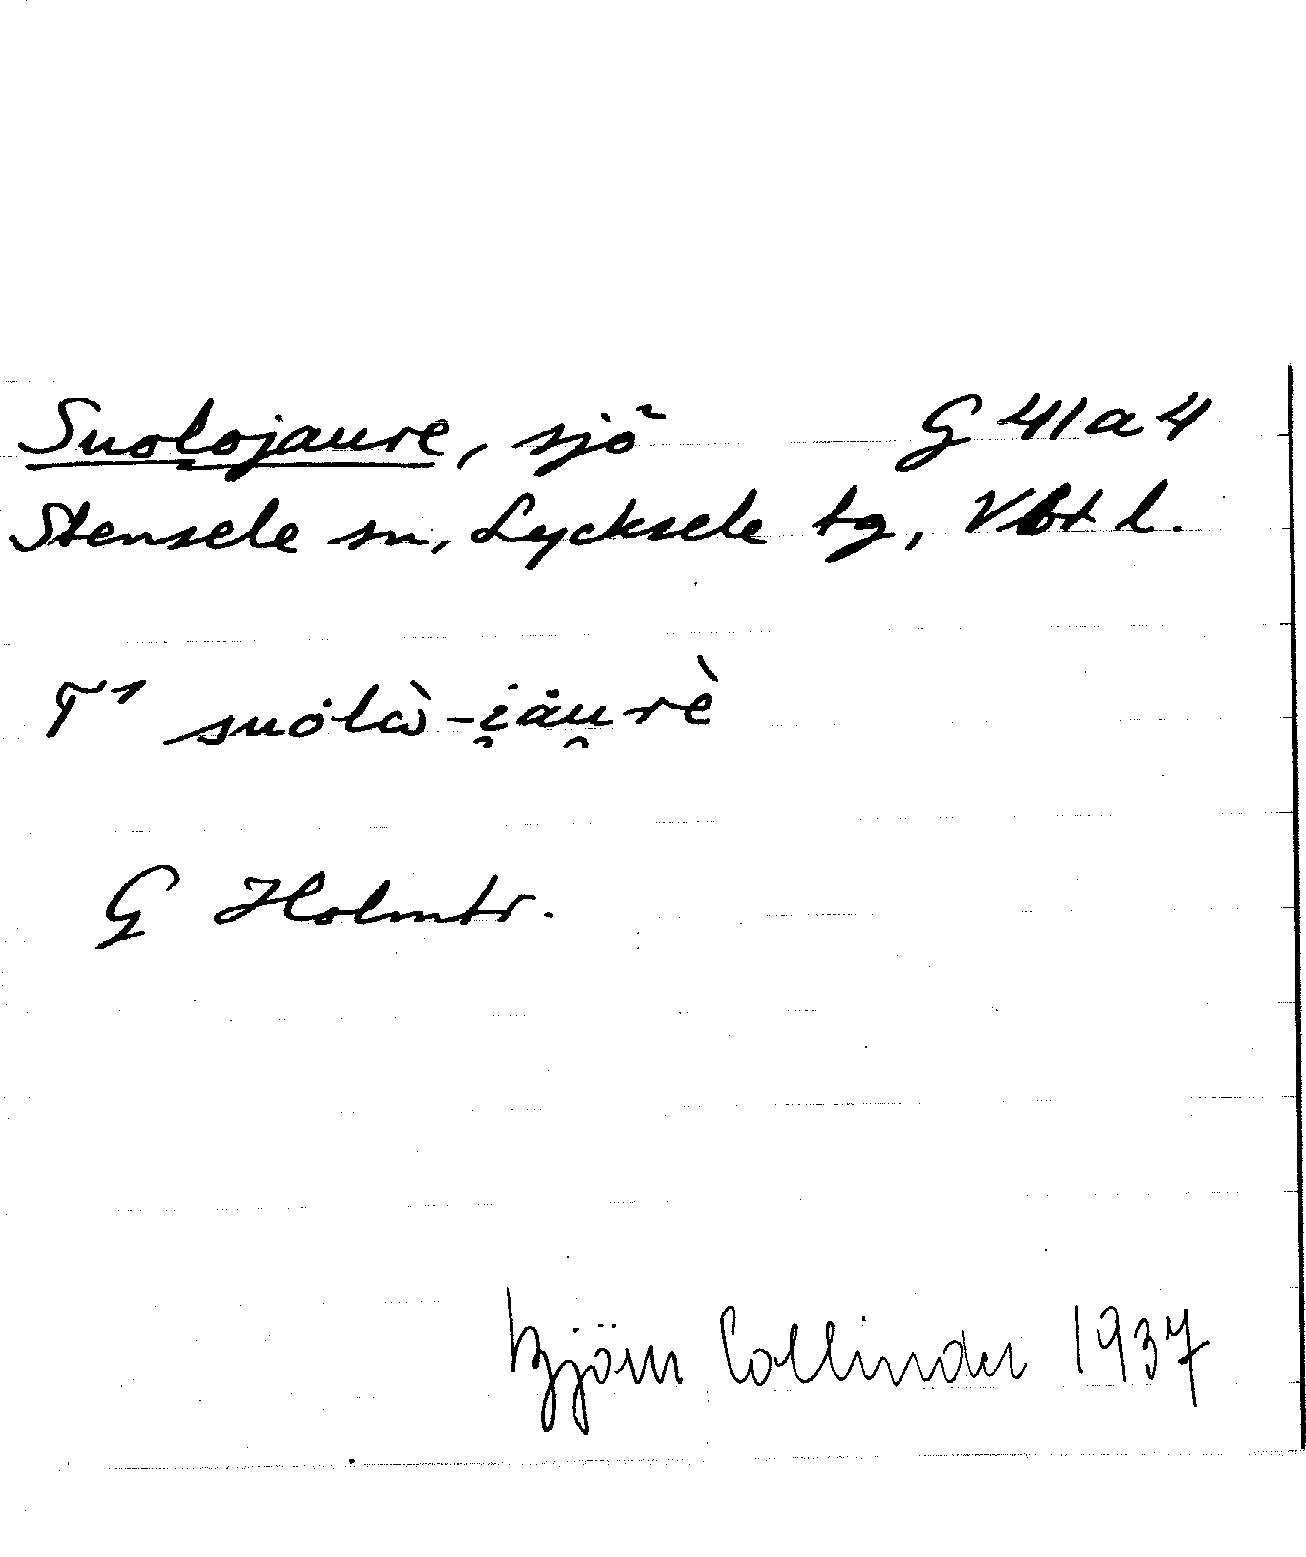 Suolojaure, sjö G 41 a 4
Stensele sn, Lycksele tg, Vbt l.
T¹ suȯlὼ-i̯ȧu̯rè
G Holmtr.
Björn Collinder 1937